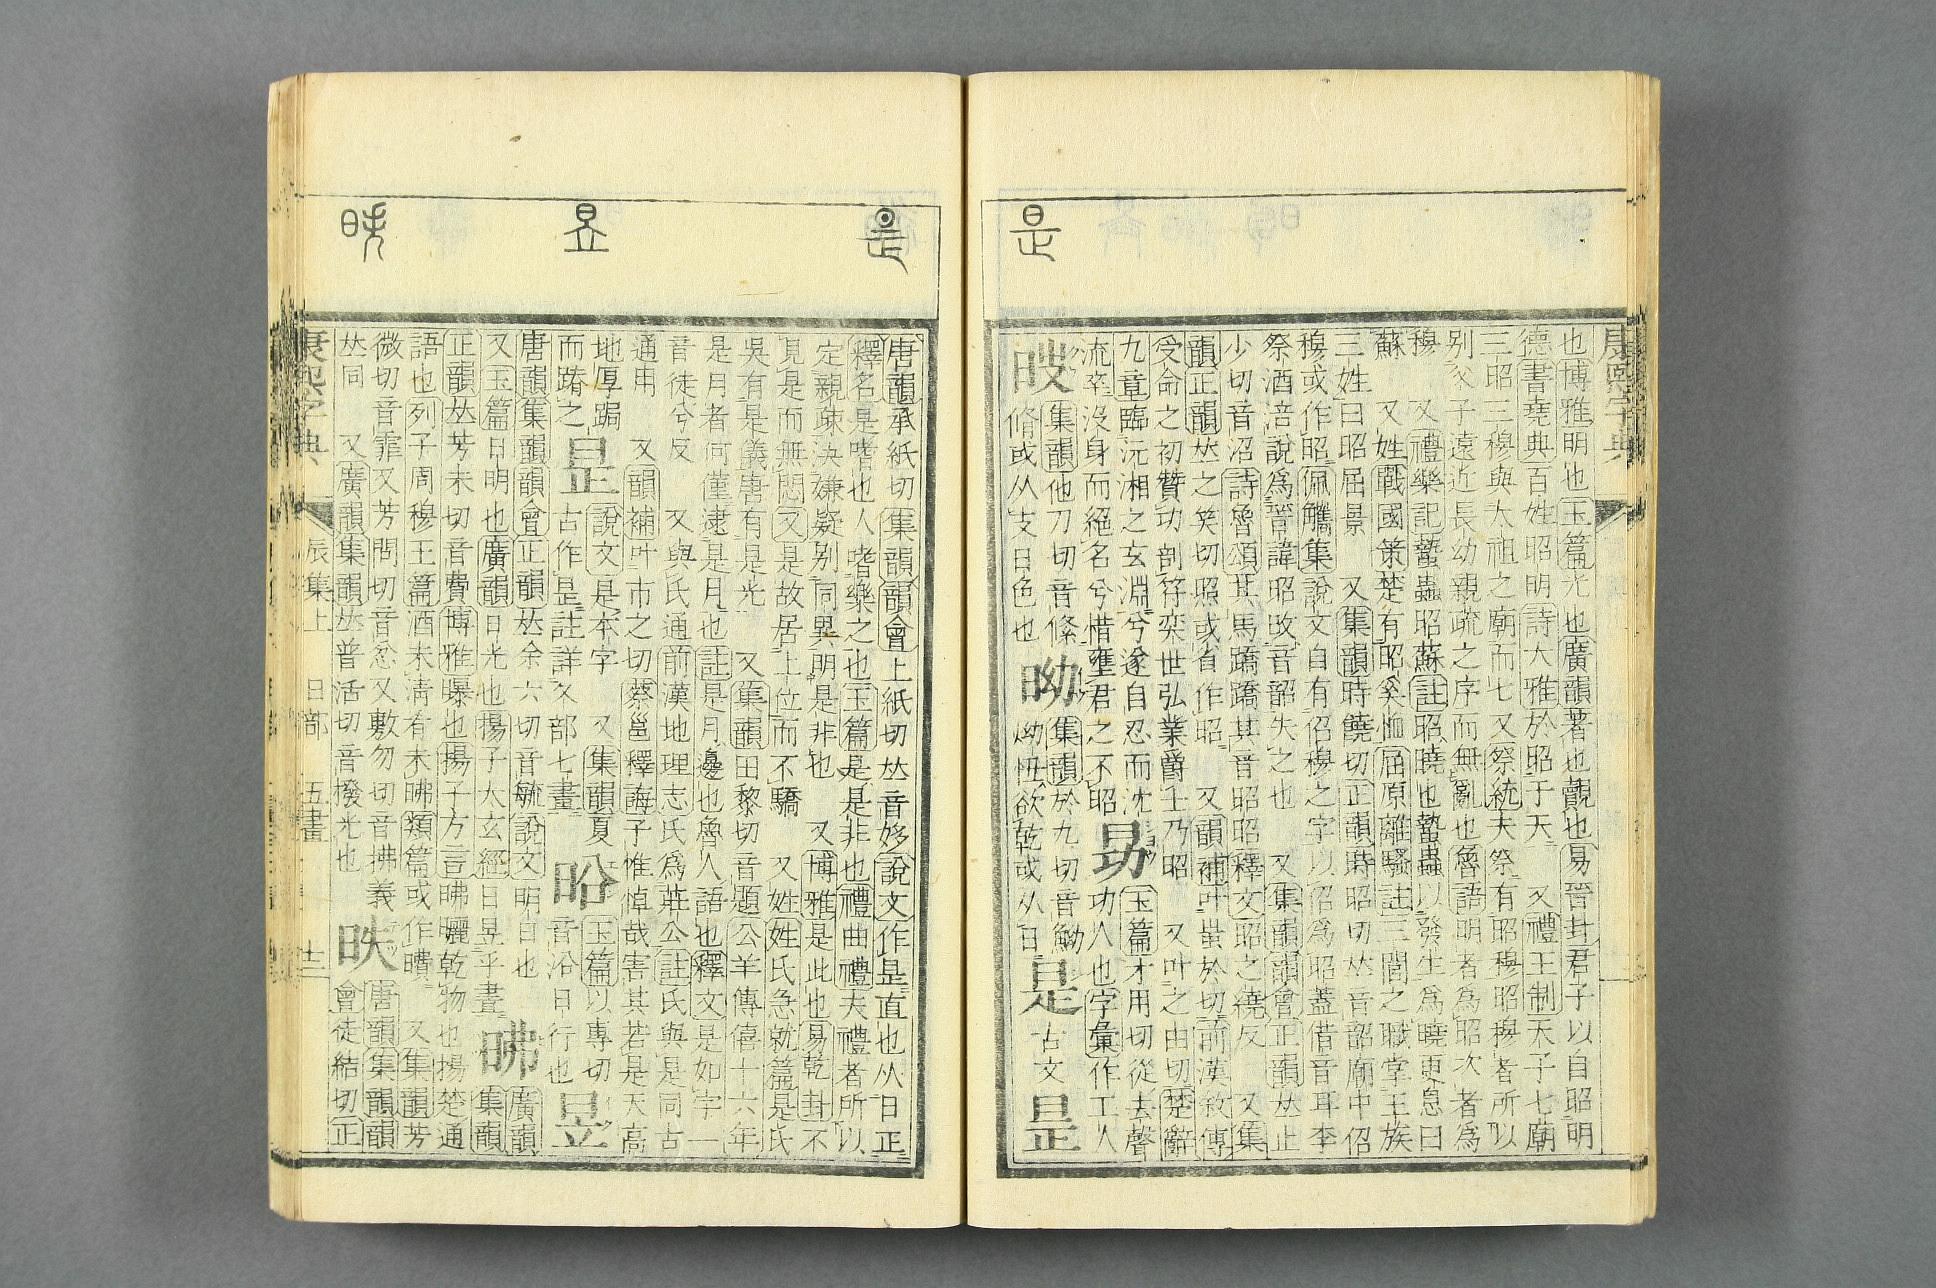 是
康熙字典
也博雅明也玉篇光也廣韻著也覿也易晉卦君子以自昭明
德書堯典百姓昭明詩大雅於昭于天　又禮王制天子七廟
三昭三穆與太祖之廟而七又祭統夫祭有昭穆昭穆者所以
别父子遠近長幼親疏之序而無亂也魯語明者為昭次者為
穆　又禮樂記蟄蟲昭蘇註昭曉也蟄蟲以發生為曉更息曰
蘇　又姓戰國策楚有昭奚恤屈原離騷註三閭之職掌王族
三姓曰昭屈景　又集韻時饒切正韻時昭切𠀤音韶廟中佋
穆或作昭佩觿集說文自有佋穆之字以佋為昭蓋借音耳李
祭酒涪說為晉諱昭攺音韶失之也　又集韻韻會正韻𠀤止
少切音沼詩魯頌其馬蹻蹻其音昭昭釋文昭之繞反　又集
韻正韻𠀤之笑切照或省作昭　又韻補叶蚩於切前漢敘傳
受命之初贊功剖符奕世弘業爵土乃昭　又叶之由切楚辭
九章臨沅湘之玄淵兮遂自忍而沈
流卒沒身而絕名兮惜壅君之不昭
玉篇才用切從去聲
功人也字彙作工人
集韻他刀切音絛
脩或从支日色也
集韻於九切音
欲乾或从日
是
古文
昰
是
昱
昳
唐韻承紙切集韻韻會上紙切𠀤音姼說文作昰直也从日正
釋名是嗜也人嗜樂之也玉篇是是非也禮曲禮夫禮者所以
定親疎決嫌疑别同異明是非也　又博雅是此也易乾卦不
見是而無悶又是故居上位而不驕　又姓姓氏急就篇是氏
吳有是儀唐有是光　又集韻田黎切音題公羊傳僖十六年
是月者何僅逮是月也註是月邊也魯人語也釋文是如字一
音徒兮反　又與氏通前漢地理志氏為莊公註氏與是同古
通用　又韻補叶市之切蔡邕釋誨子惟悼哉害其若是天高
地厚跼
而蹐之
昰
說文是本字　又集韻夏
古作昰註詳夊部七畫
㕣
玉篇以專切
音沿日行也
昱
唐韻集韻韻會正韻𠀤余六切音毓說文明日也
又玉篇日明也廣韻日光也揚子太玄經日昱乎晝
昲
廣韻
集韻
正韻𠀤芳未切音費博雅曝也揚子方言昲曬乾物也揚楚通
語也列子周穆王篇酒未清肴未昲類篇或作　又集韻芳
微切音霏又芳問切音忿又敷勿切音拂義
𠀤同　又廣韻集韻𠀤普活切音撥光也
昳
唐韻集韻韻
會徒結切正
康熙字典　辰集上　日部　五畫　十二